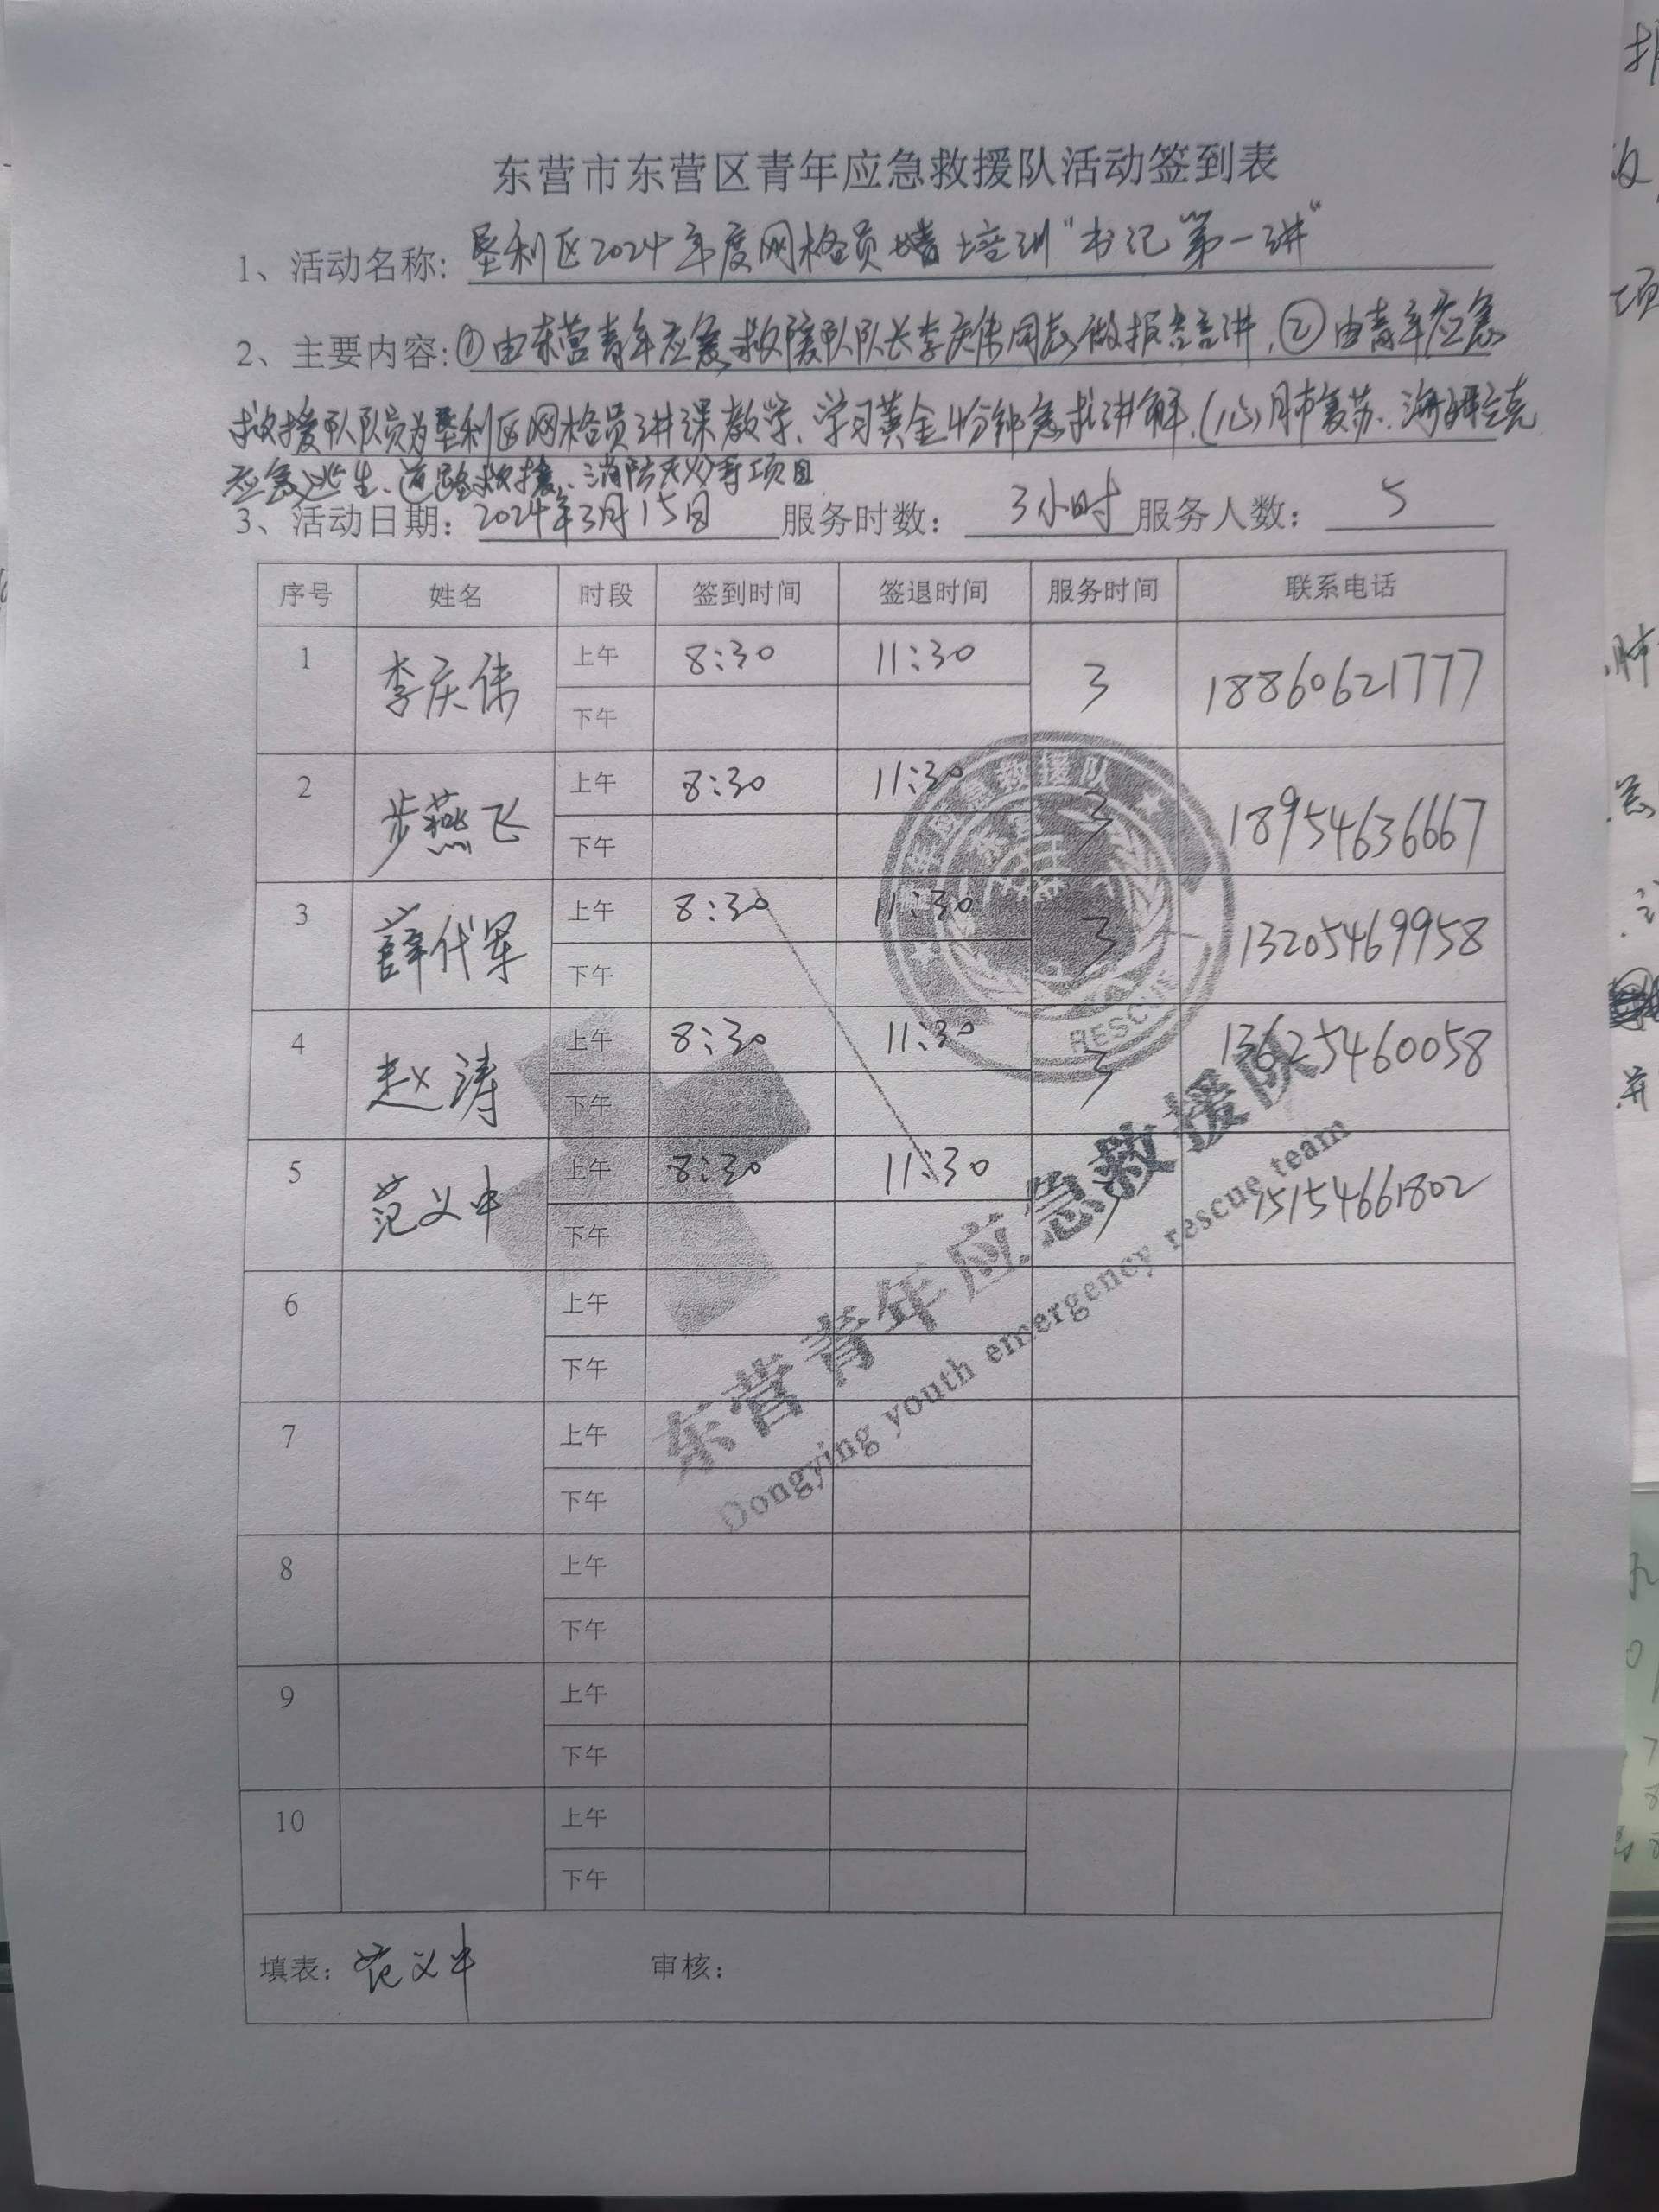 东营市东营区青年应急救援队活动签到表
1、活动名称: 垦利区2024年度网格员 培训"书记第一讲"
2、主要内容:①由东营青年应急救援队队长李庆伟同志做报告宣讲,②由青年应急
救援队队员为垦利区网格员讲课教学、学习黄金4分钟急救讲解、(心)肺复苏、海姆立克
应急逃生、道路救援、消防灭火等项目
3、活动日期: 2024年3月15日 服务时数: 3小时 服务人数: 5
序号 姓名 时段 签到时间 签退时间 服务时间 联系电话
1 李庆伟 上午 8:30 11:30 3 18860621777
下午
2 步燕飞 上午 8:30 11:30 3 18954636667
下午
3 薛代军 上午 8:30 11:30 3 13205469958
下午
4 赵涛 上午 8:30 11:30 3 13625460058
下午
5 范义中 上午 8:30 11:30 3 15154661802
下午
6 上午
下午
7 上午
下午
8 上午
下午
9 上午
下午
10 上午
下午
填表: 范义中 审核:
应急救援队
RESCUE
东营青年应急救援队
Dongying youth emergency rescue team